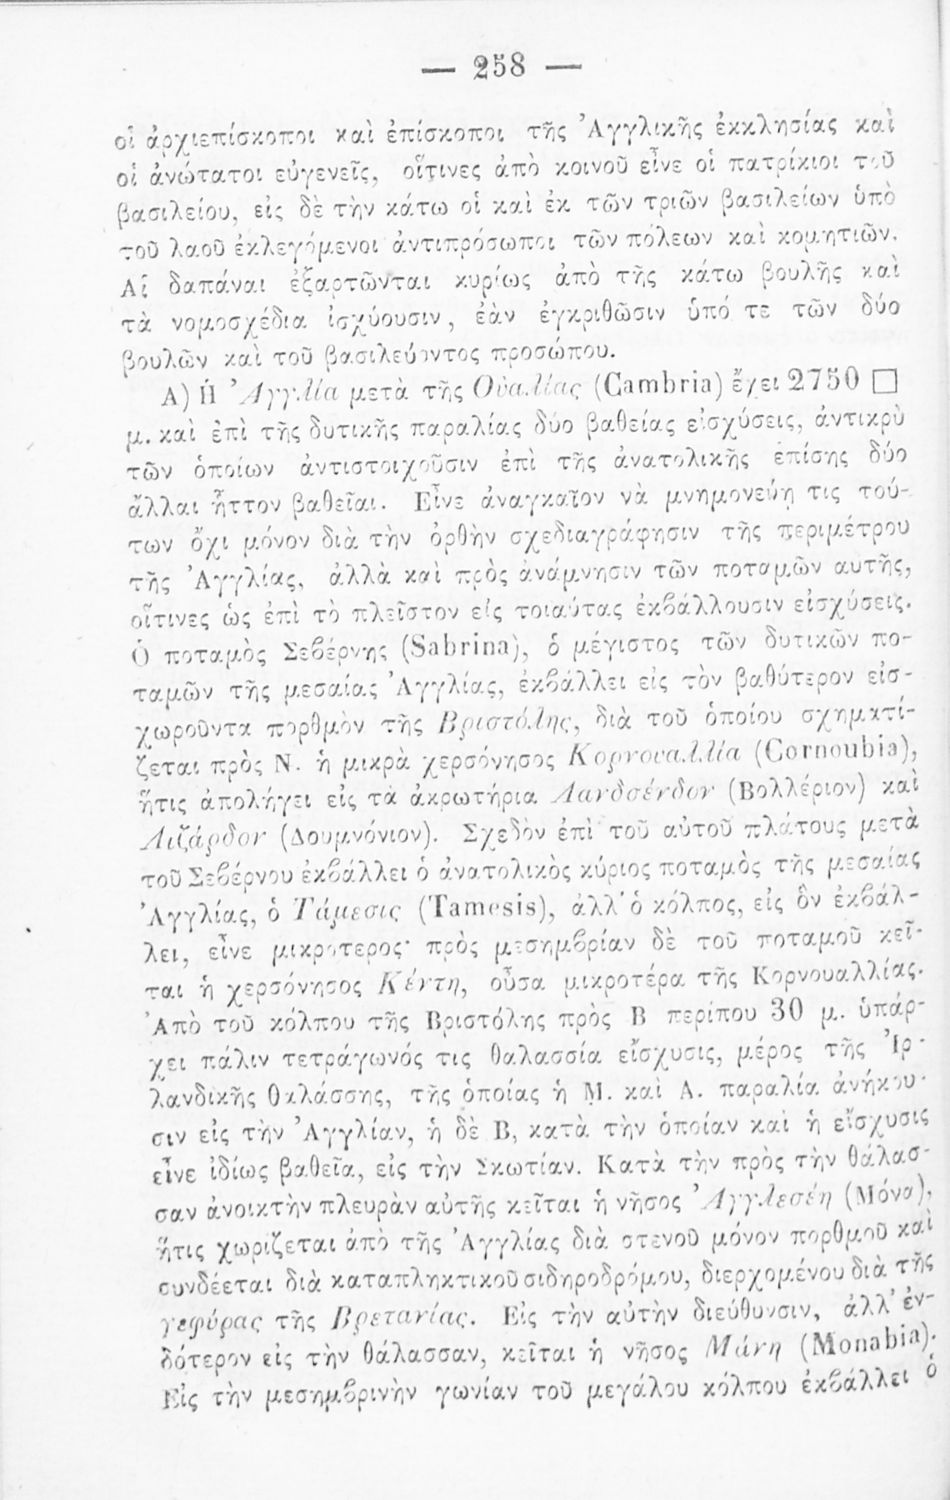 — 258 —
οἱ ἀρχιεπίσκοποι καὶ ἐπίσκοποι τῆς Ἀγγλικῆς ἐκκλησίας καὶ
οἱ ἀνώτατοι εὐγενεῖς, οἵτινες ἀπὸ κοινοῦ εἶνε οἱ πατρίκιοι τοῦ
βασιλείου, εἰς δὲ τὴν κάτω οἱ καὶ ἐκ τῶν τριῶν βασιλείων ὑπὸ
τοῦ λαοῦ ἐκλεγόμενοι ἀντιπρόσωποι τῶν πόλεων καὶ κομητιῶν.
Αἱ δαπάναι ἐξαρτῶνται κυρίως ἀπὸ τῆς κάτω βουλῆς καὶ
τὰ νομοσχέδια ἰσχύουσιν, ἐὰν ἐγκριθῶσιν ὑπό τε τῶν δύο
βουλῶν καὶ τοῦ βασιλεύοντος προσώπου.
Α) Ἡ Ἀγγλία μετὰ τῆς Οὐαλίας (Cambria) ἔχει 2750 □
μ. καὶ ἐπὶ τῆς δυτικῆς παραλίας δύο βαθείας εἰσχύσεις, ἀντικρὺ
τῶν ὁποίων ἀντιστοιχοῦσιν ἐπὶ τῆς ἀνατολικῆς ἐπίσης δύο
ἄλλαι ἧττον βαθεῖαι. Εἶνε ἀναγκαῖον νὰ μνημονεύῃ τις τού-
των ὄχι μόνον διὰ τὴν ὀρθὴν σχεδιαγράφησιν τῆς περιμέτρου
τῆς Ἀγγλίας, ἀλλὰ καὶ πρὸς ἀνάμνησιν τῶν ποταμῶν αυτῆς,
οἵτινες ὡς ἐπὶ τὸ πλεῖστον εἰς τοιαύτας ἐκβάλλουσιν εἰσχύσεις.
Ὁ ποταμὸς Σεβέρνης (Sabrina), ὁ μέγιστος τῶν δυτικῶν πο-
ταμῶν τῆς μεσαίας Ἀγγλίας, ἐκβάλλει εἰς τὸν βαθύτερον εἰσ-
χωροῦντα πορθμὸν τῆς Βριστόλης, διὰ τοῦ ὁποίου σχηματί-
ζεται πρὸς Ν. ἡ μικρὰ χερσόνησος Κορνουαλλία (Cornoubia),
ἥτις ἀπολήγει εἰς τὰ ἀκρωτήρια Λανδσένδον (Βολλέριον) καὶ
Λιζάρδον (Δουμνόνιον). Σχεδὸν ἐπὶ τοῦ αὐτοῦ πλάτους μετὰ
τοῦ Σεβέρνου ἐκβάλλει ὁ ἀνατολικὸς κύριος ποταμὸς τῆς μεσαίας
Ἀγγλίας, ὁ Τάμεσις (Tamesis), ἀλλ' ὁ κόλπος, εἰς ὃν ἐκβάλ-
λει, εἶνε μικρότερος· πρὸς μεσημβρίαν δὲ τοῦ ποταμοῦ κεῖ-
ται ἡ χερσόνησος Κέντη, οὖσα μικροτέρα τῆς Κορνουαλλίας.
Ἀπὸ τοῦ κόλπου τῆς Βριστόλης πρὸς Β περίπου 30 μ. ὑπάρ-
χει πάλιν τετράγωνός τις θαλασσία εἴσχυσις, μέρος τῆς Ἰρ-
λανδικῆς θαλάσσης, τῆς ὁποίας ἡ Μ. καὶ Α. παραλία ἀνήκου-
σιν εἰς τὴν Ἀγγλίαν, ἡ δὲ Β, κατὰ τὴν ὁποίαν καὶ ἡ εἴσχυσις
εἶνε ἰδίως βαθεῖα, εἰς τὴν Σκωτίαν. Κατὰ τὴν πρὸς τὴν θάλασ-
σαν ἀνοικτὴν πλευρὰν αὐτῆς κεῖται ἡ νῆσος Ἀγγλεσέη (Μόνα),
ἥτις χωρίζεται ἀπὸ τῆς Ἀγγλίας διὰ στενοῦ μόνον πορθμοῦ καὶ
συνδέεται διὰ καταπληκτικοῦ σιδηροδρόμου, διερχομένου διὰ τῆς
γεφύρας τῆς Βρετανίας. Εἰς τὴν αὐτὴν διεύθυνσιν, ἀλλ' ἐν-
δότερον εἰς τὴν θάλασσαν, κεῖται ἡ νῆσος Μάνη (Monabia).
Εἰς τὴν μεσημβρινὴν γωνίαν τοῦ μεγάλου κόλπου ἐκβάλλει ὁ